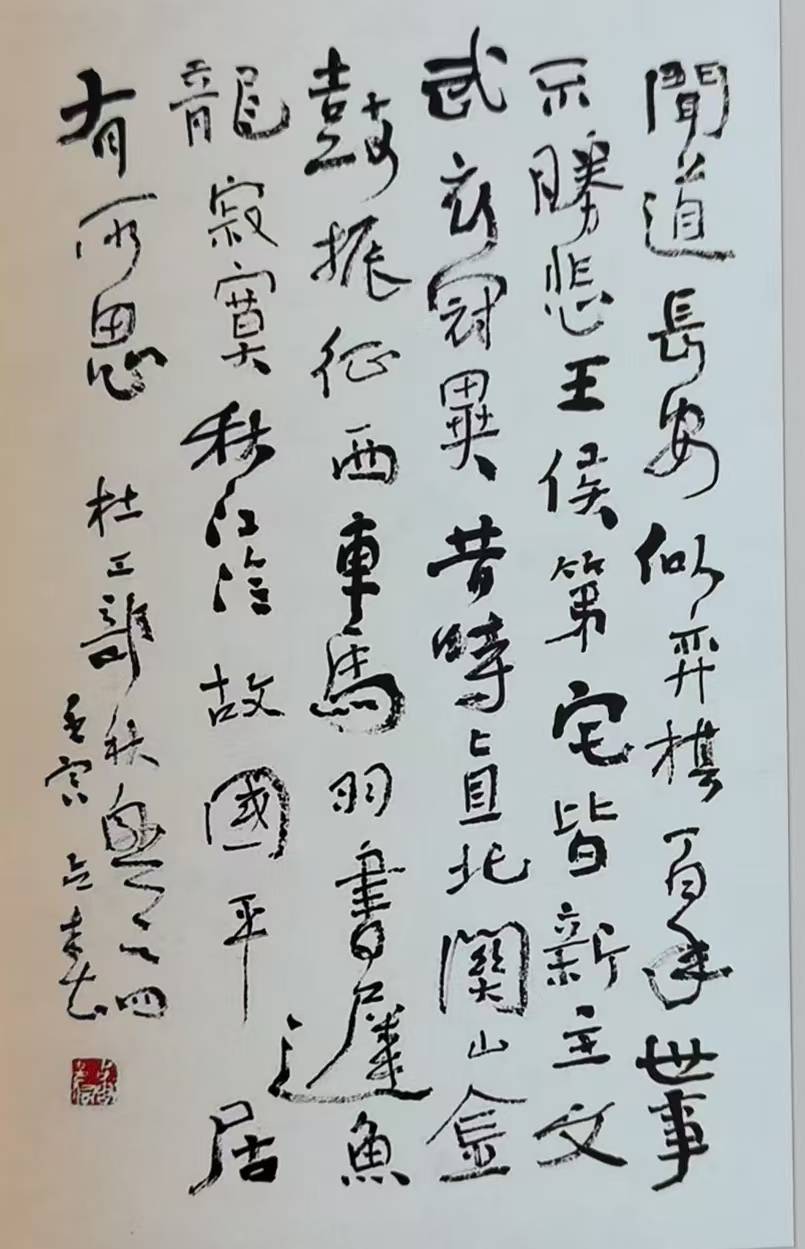 聞道長安似弈棋百年世事
不勝悲王侯第宅皆新主文
武衣冠異昔時直北關山金
鼓振征西車馬羽書遲魚
龍寂寞秋江冷故國平居
有所思
杜工部秋興之四
壬寅